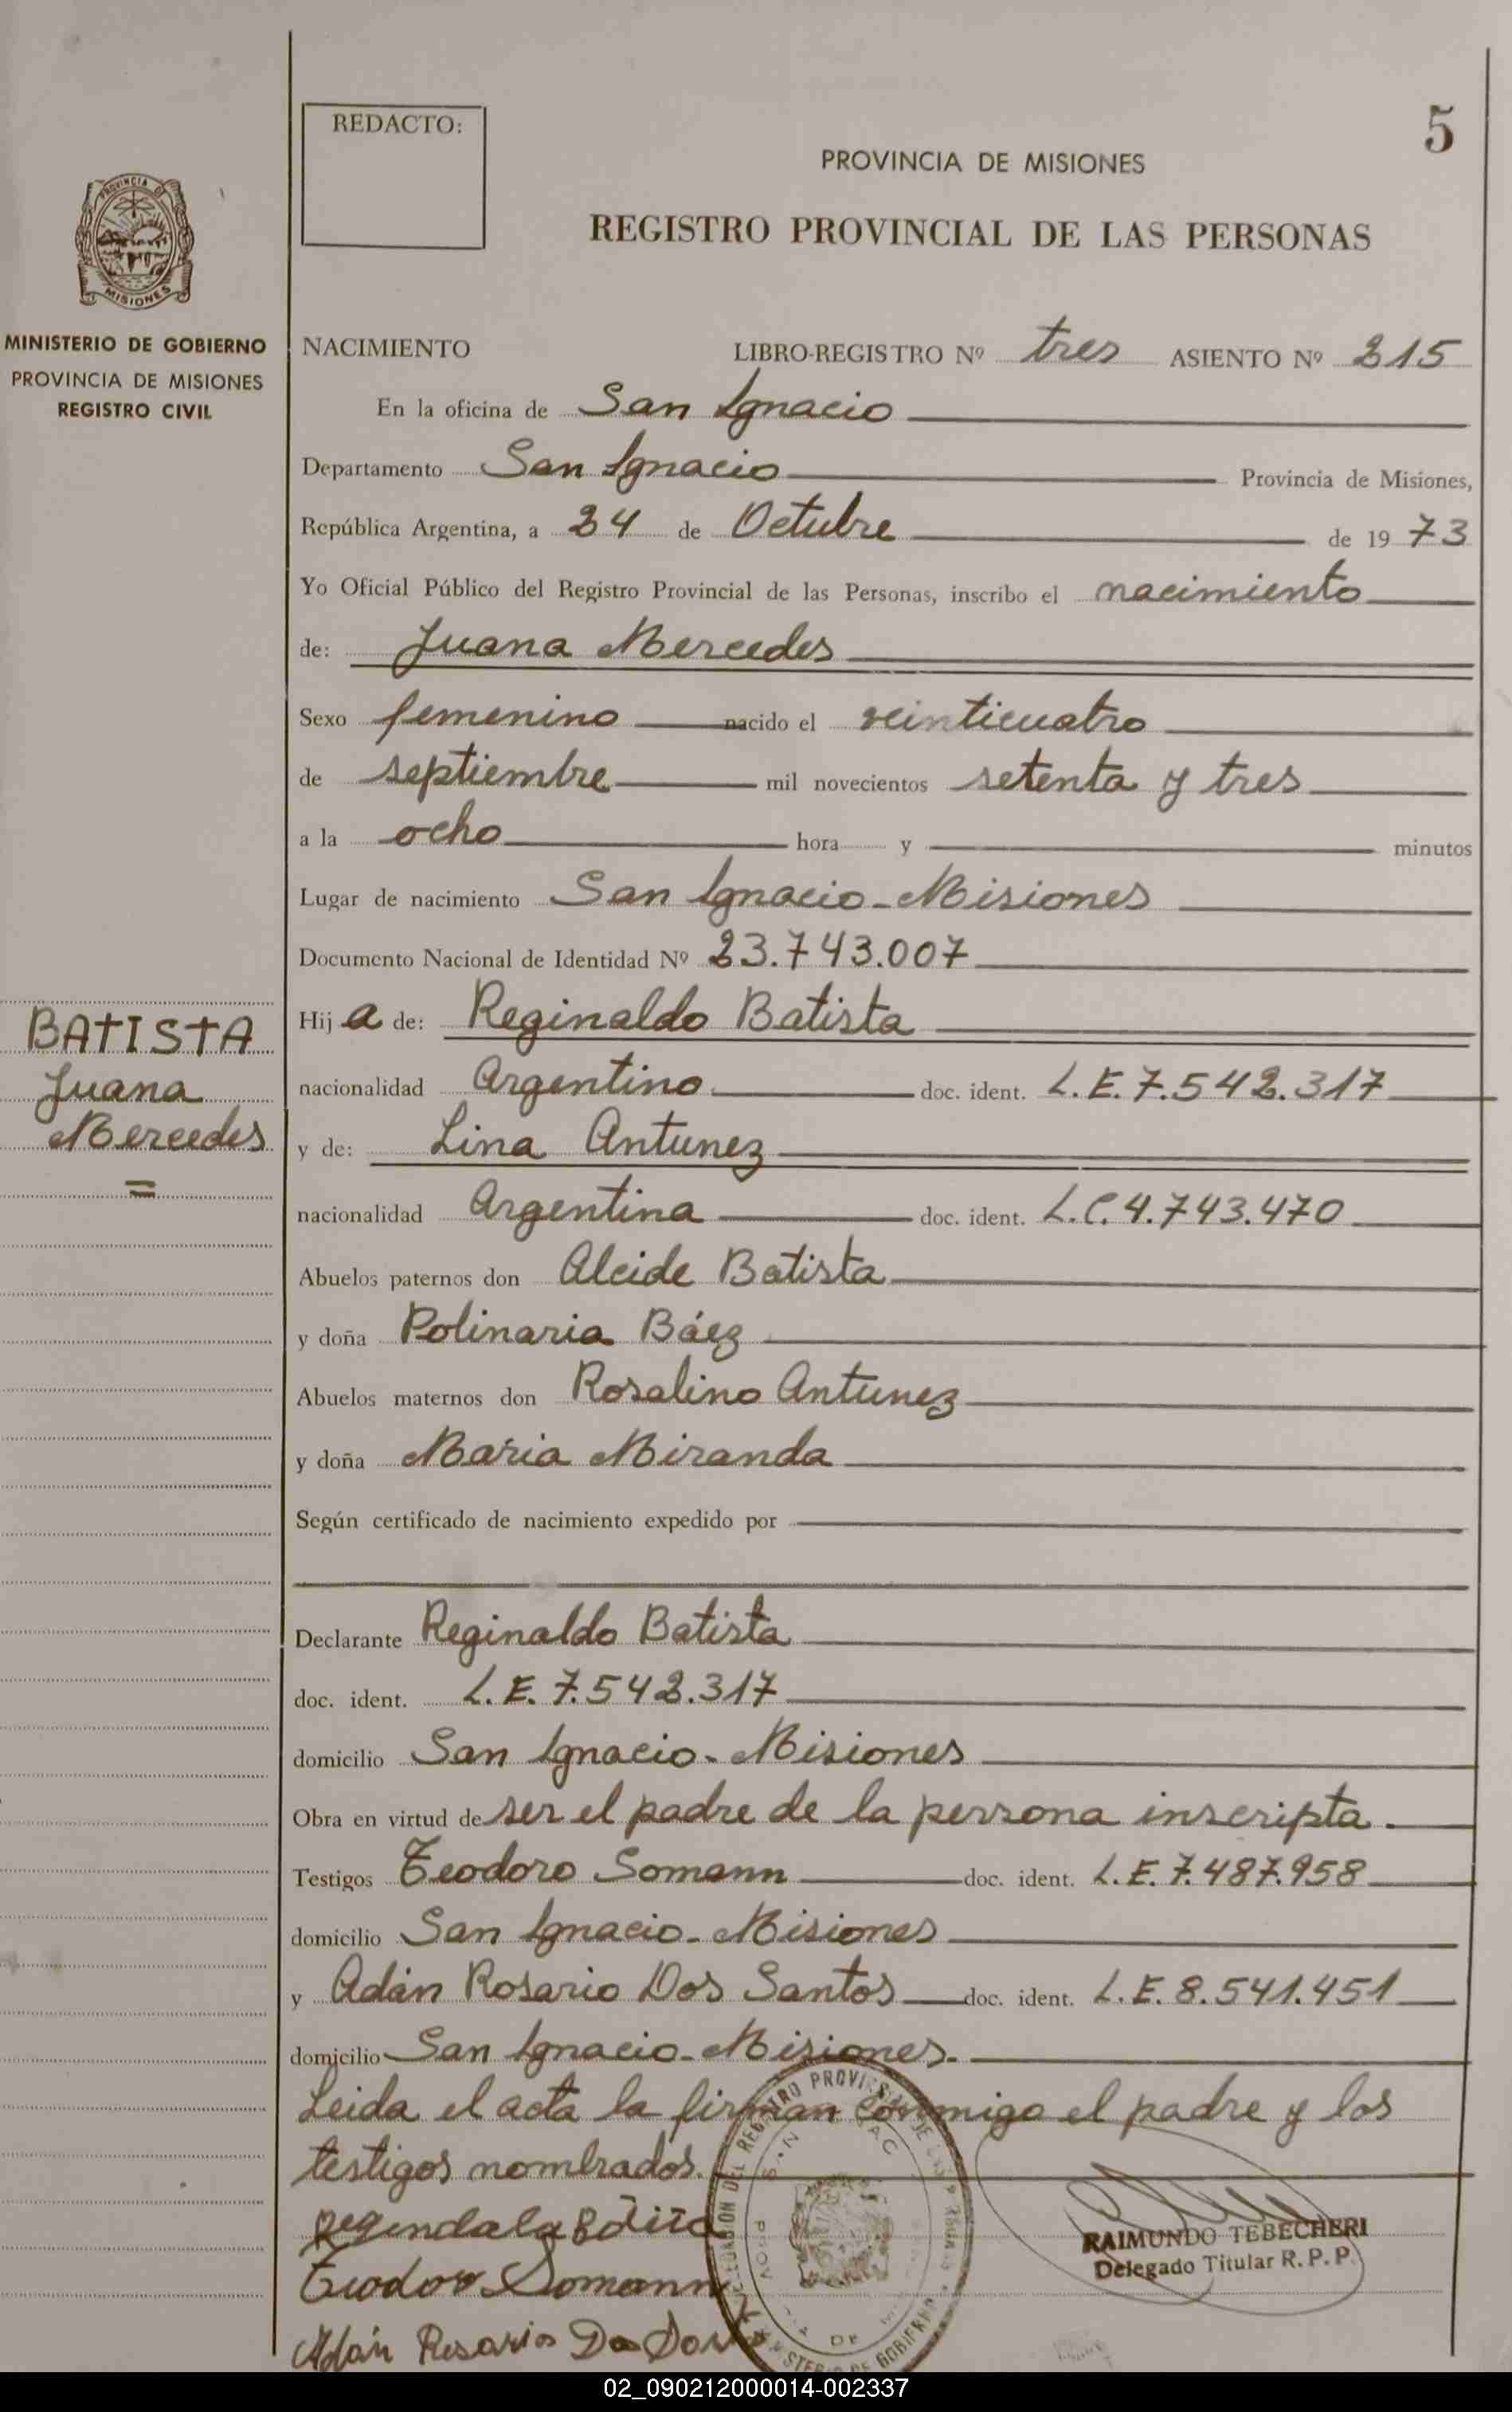 REDACTO:
5
PROVINCIA DE MISIONES
REGISTRO PROVINCIAL DE LAS PERSONAS
PROVINCIA DE
MISIONES
MINISTERIO DE GOBIERNO
PROVINCIA DE MISIONES
REGISTRO CIVIL
NACIMIENTO LIBRO-REGISTRO Nº tres ASIENTO Nº 215
En la oficina de San Ignacio
Departamento San Ignacio Provincia de Misiones,
República Argentina, a 24 de Octubre de 1973
Yo Oficial Público del Registro Provincial de las Personas, inscribo el nacimiento
de: Juana Mercedes
Sexo femenino nacido el veinticuatro
de septiembre mil novecientos setenta y tres
a la ocho hora y minutos
Lugar de nacimiento San Ignacio - Misiones
Documento Nacional de Identidad Nº 23.743.007
BATISTA
Juana
Mercedes
=
Hija de: Reginaldo Batista
nacionalidad Argentino doc. ident. L.E. 7.542.317
y de: Lina Antunez
nacionalidad Argentina doc. ident. L.C. 4.743.470
Abuelos paternos don Alcide Batista
y doña Polinaria Báez
Abuelos maternos don Rosalino Antunez
y doña Maria Miranda
Según certificado de nacimiento expedido por
Declarante Reginaldo Batista
doc. ident. L.E. 7.542.317
domicilio San Ignacio - Misiones
Obra en virtud de ser el padre de la persona inscripta.
Testigos Teodoro Somann doc. ident. L.E. 7.487.958
domicilio San Ignacio - Misiones
y Adán Rosario Dos Santos doc. ident. L.E. 8.541.451
domicilio San Ignacio - Misiones.
Leida el acta la firman conmigo el padre y los
testigos nombrados.
RAIMUNDO TEBECHERI
Delegado Titular R. P. P.
Teodoro Somann
Adán Rosario Dos
02_090212000014-002337